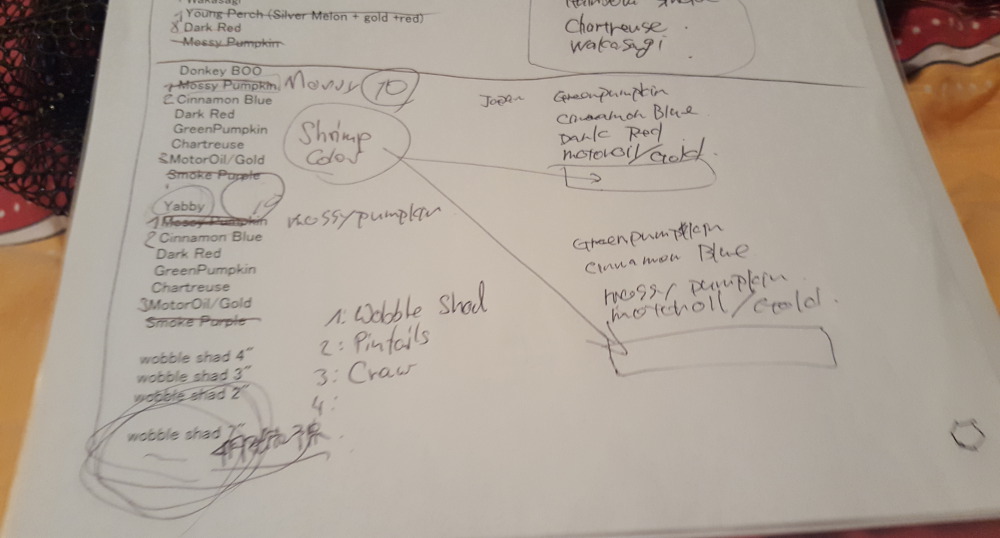 Young Perch (Silver Melon + gold +red)
8 Dark Red
Mossy Pumpkin
Chartreuse
wakasagi
Donkey BOO
1 Mossy Pumpkin
10
2 Cinnamon Blue
Dark Red
GreenPumpkin
Chartreuse
3 MotorOil/Gold
Smoke Purple
Shrimp
Color
Japan Greenpumpkin
cinnamon Blue
Dark Red
motoroil/Gold
Yabby
19
1 Mossy Pumpkin
mossypumpkin
2 Cinnamon Blue
Dark Red
GreenPumpkin
Chartreuse
3MotorOil/Gold
Smoke Purple
Greenpumpkin
cinnamon Blue
mossy pumpkin
/Gold
wobble shad 4"
wobble shad 3"
wobble shad 2"
wobble shad
1: Wobble Shad
2: Pintails
3: Craw
4: